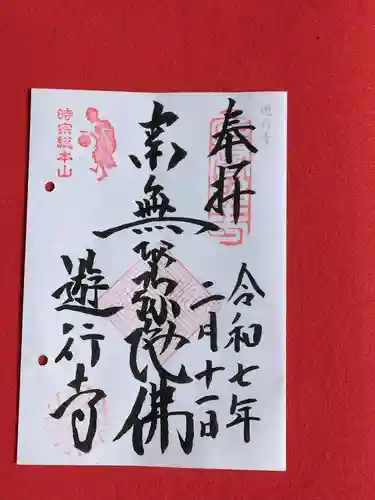 遊行寺
奉拝
令和七年
二月十一日
南無阿弥陀佛
遊行寺
時宗総本山